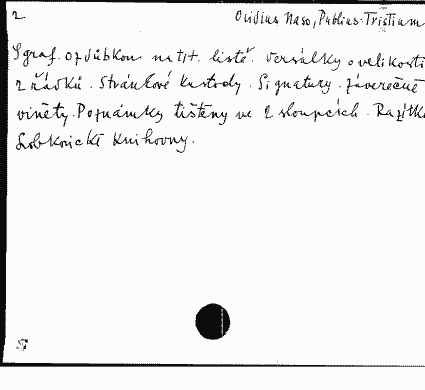 2
Ovidius Naso, Publius: Tristium
S graf. ozdůbkou na tit. listě. Versálky o velikosti
2 řádků. Stránkové kustody. Signatury. Závěrečné
viněty. Poznámky tištěny ve 2 sloupcích. Razítko
Lobkovické knihovny.